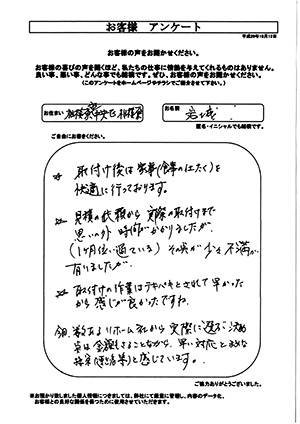 お客様　アンケート
平成29年10月12日
お客様の声をお聞かせください。
お客様の喜びの声を聞くほど、私たちの仕事に情熱を与えてくれるものはありません。
良い事、悪い事、どんな事でも結構です。ぜひ、お客様の声をお聞かせください。
(このアンケートをホームページやチラシでご紹介させて下さい。)
お住まい
相模原
中央区
お名前
匿名・イニシャルでも結構です。
ご自由にお書きください。
取付け後は家事(食事の仕たく)を
快適に行っております。
見積の依頼から実際の取付けまで
思いの外 時間がかかりましたが
(1ヶ月位い過ている) その点が少々不満が
有りましたが
取付けの作業はテキパキとされて早かった
から感じが良かったですね
今回、数あるリホーム社から実際に選ぶ決め
は金額もさることながら、早い対応と
と感じています。
ご協力ありがとうございました。
※お預かり致しました個人情報につきましては、弊社にて厳重に管理し、内容のデータ化、
お客様との良好な関係を築くために使用させていただきます。